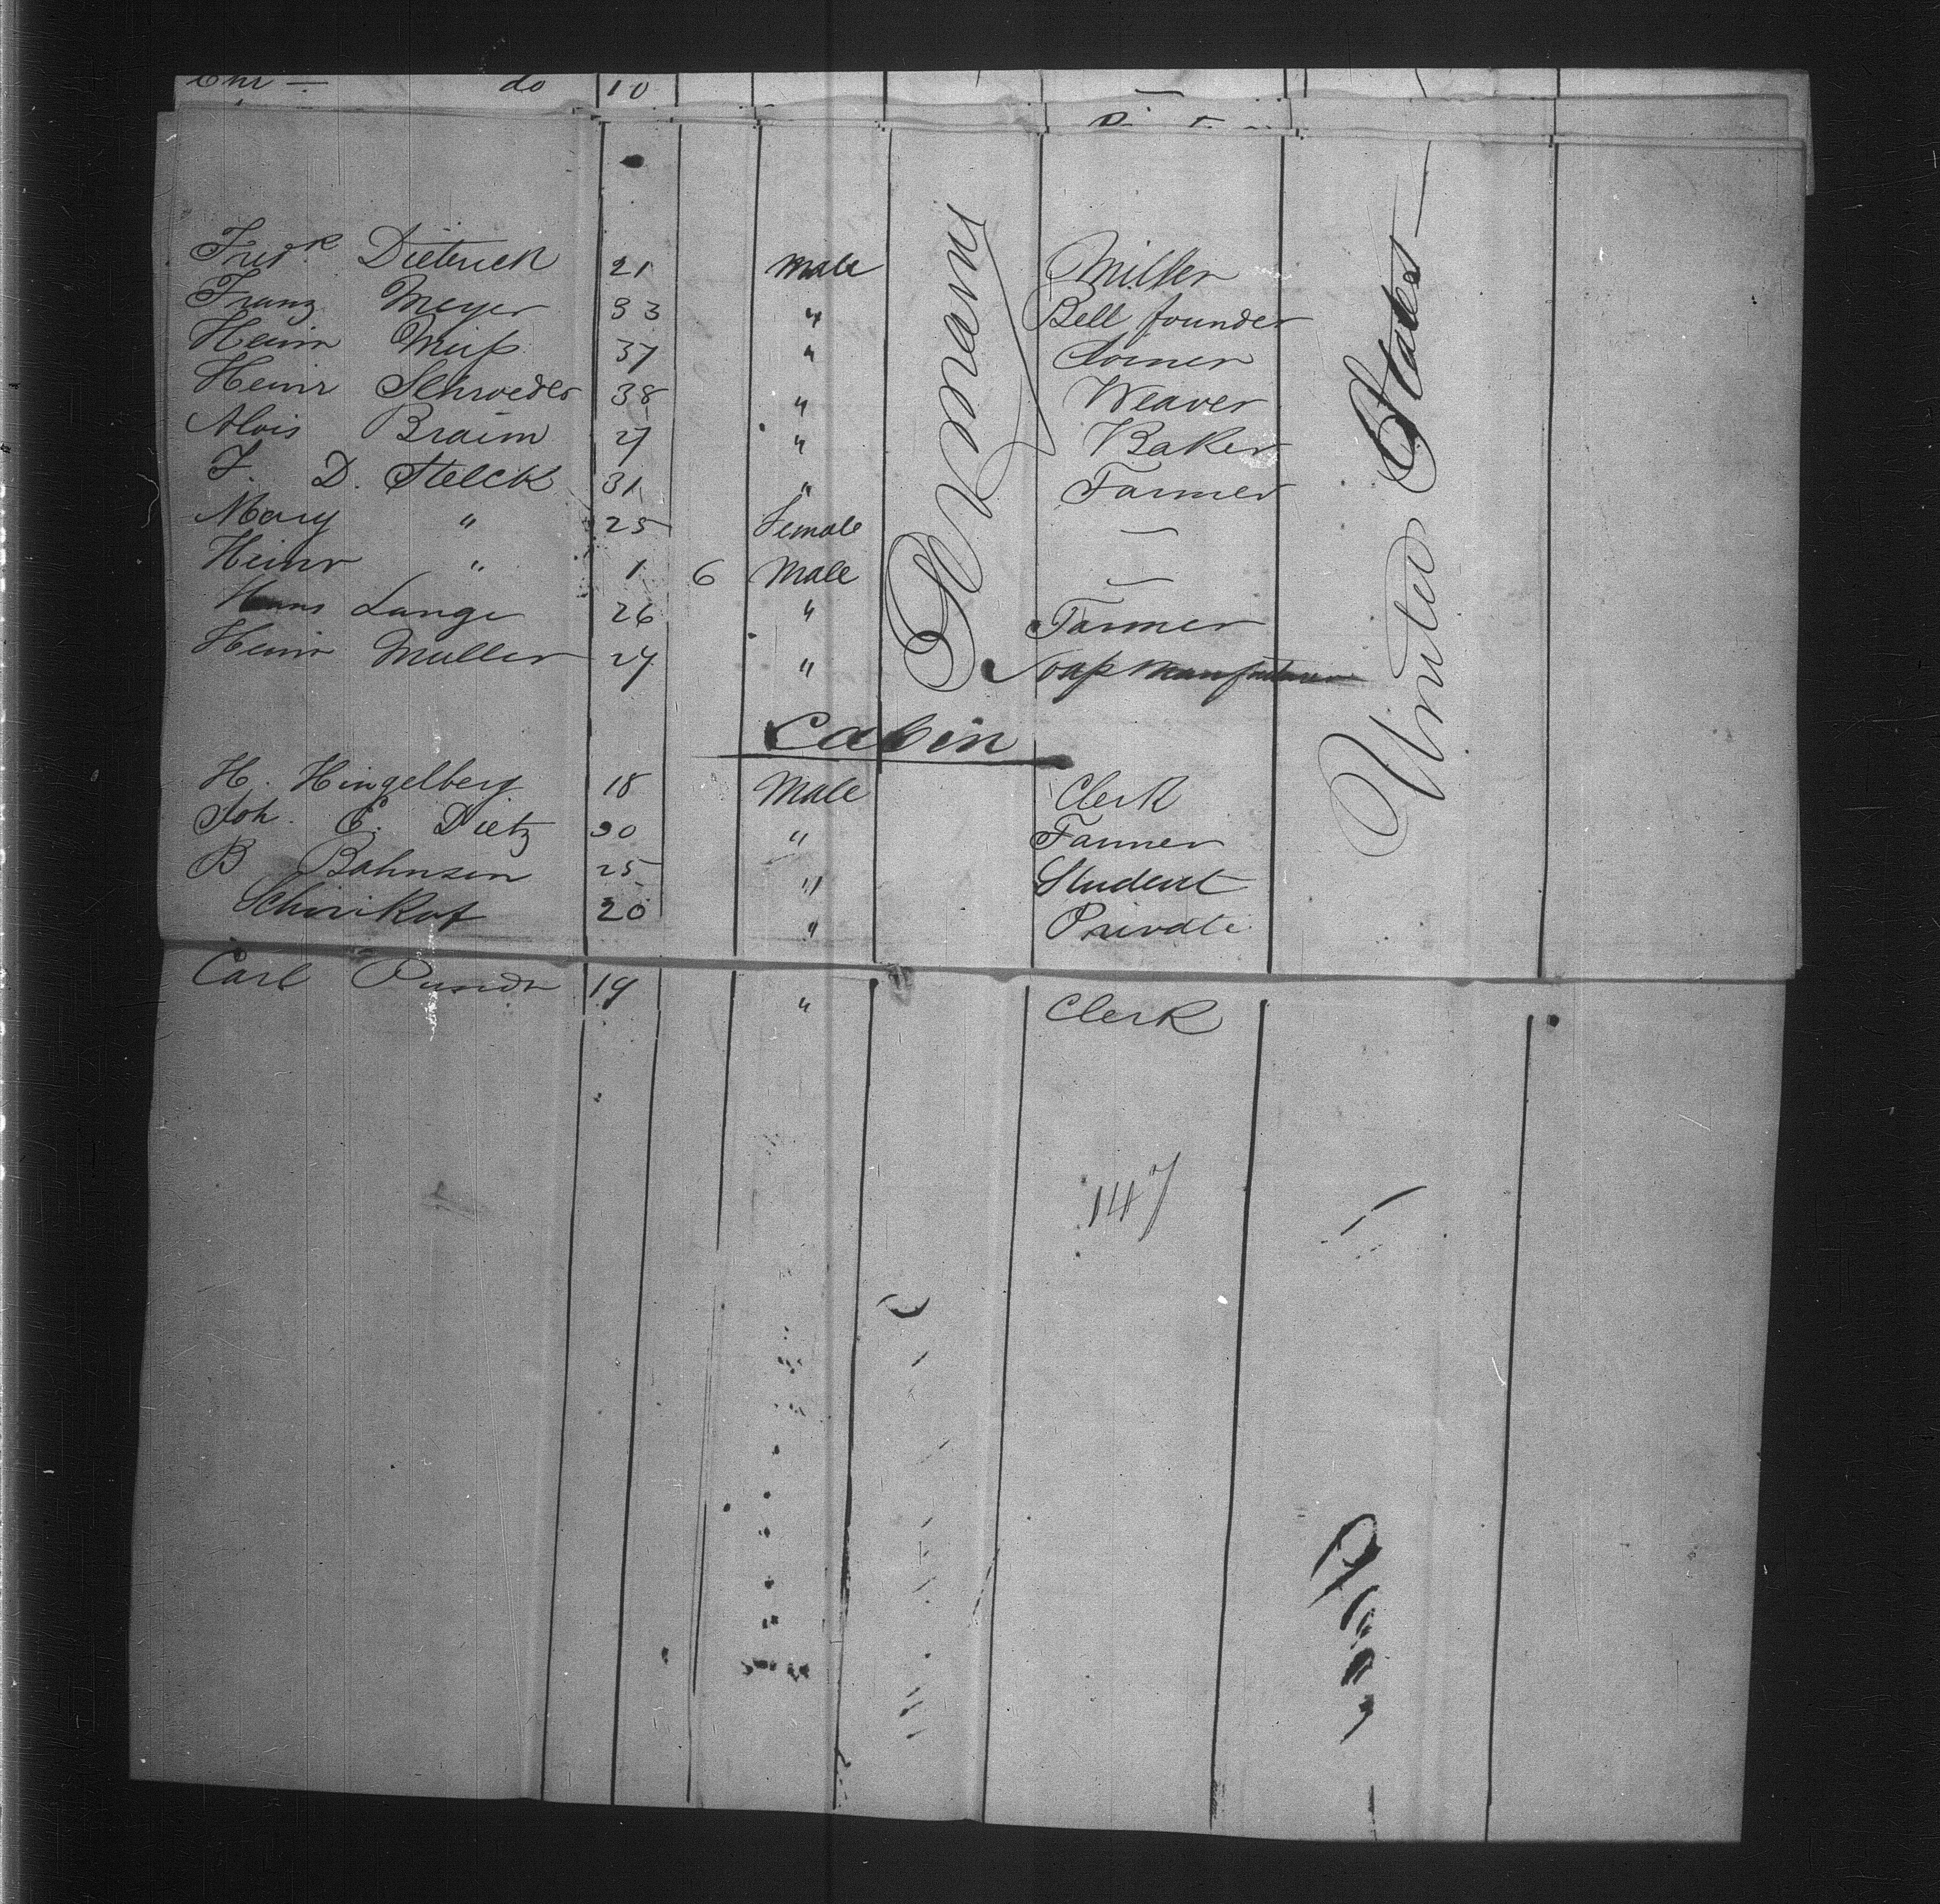 Chr — do 10
Fredk Dieterich 21 Male Miller
Franz Meyer 33 " Bell founder
Heinr 37 "
Heinr Schroeder 38 " Weaver
Alois Braun 27 " Baker
J. D. Stelck 31 " Farmer
Mary " 25 Female —
Heinr " 1 6 Male —
Hans Lange 26 " Farmer
Heinr Muller 27 " Soap Manufacturer
Germany
United States
Cabin
H. Hingelberg 18 Male Clerk
Joh. E. Dietz 30 " Farmer
B Bahnsen 25 " Student
20 " Private
Carl 19 " Clerk
147